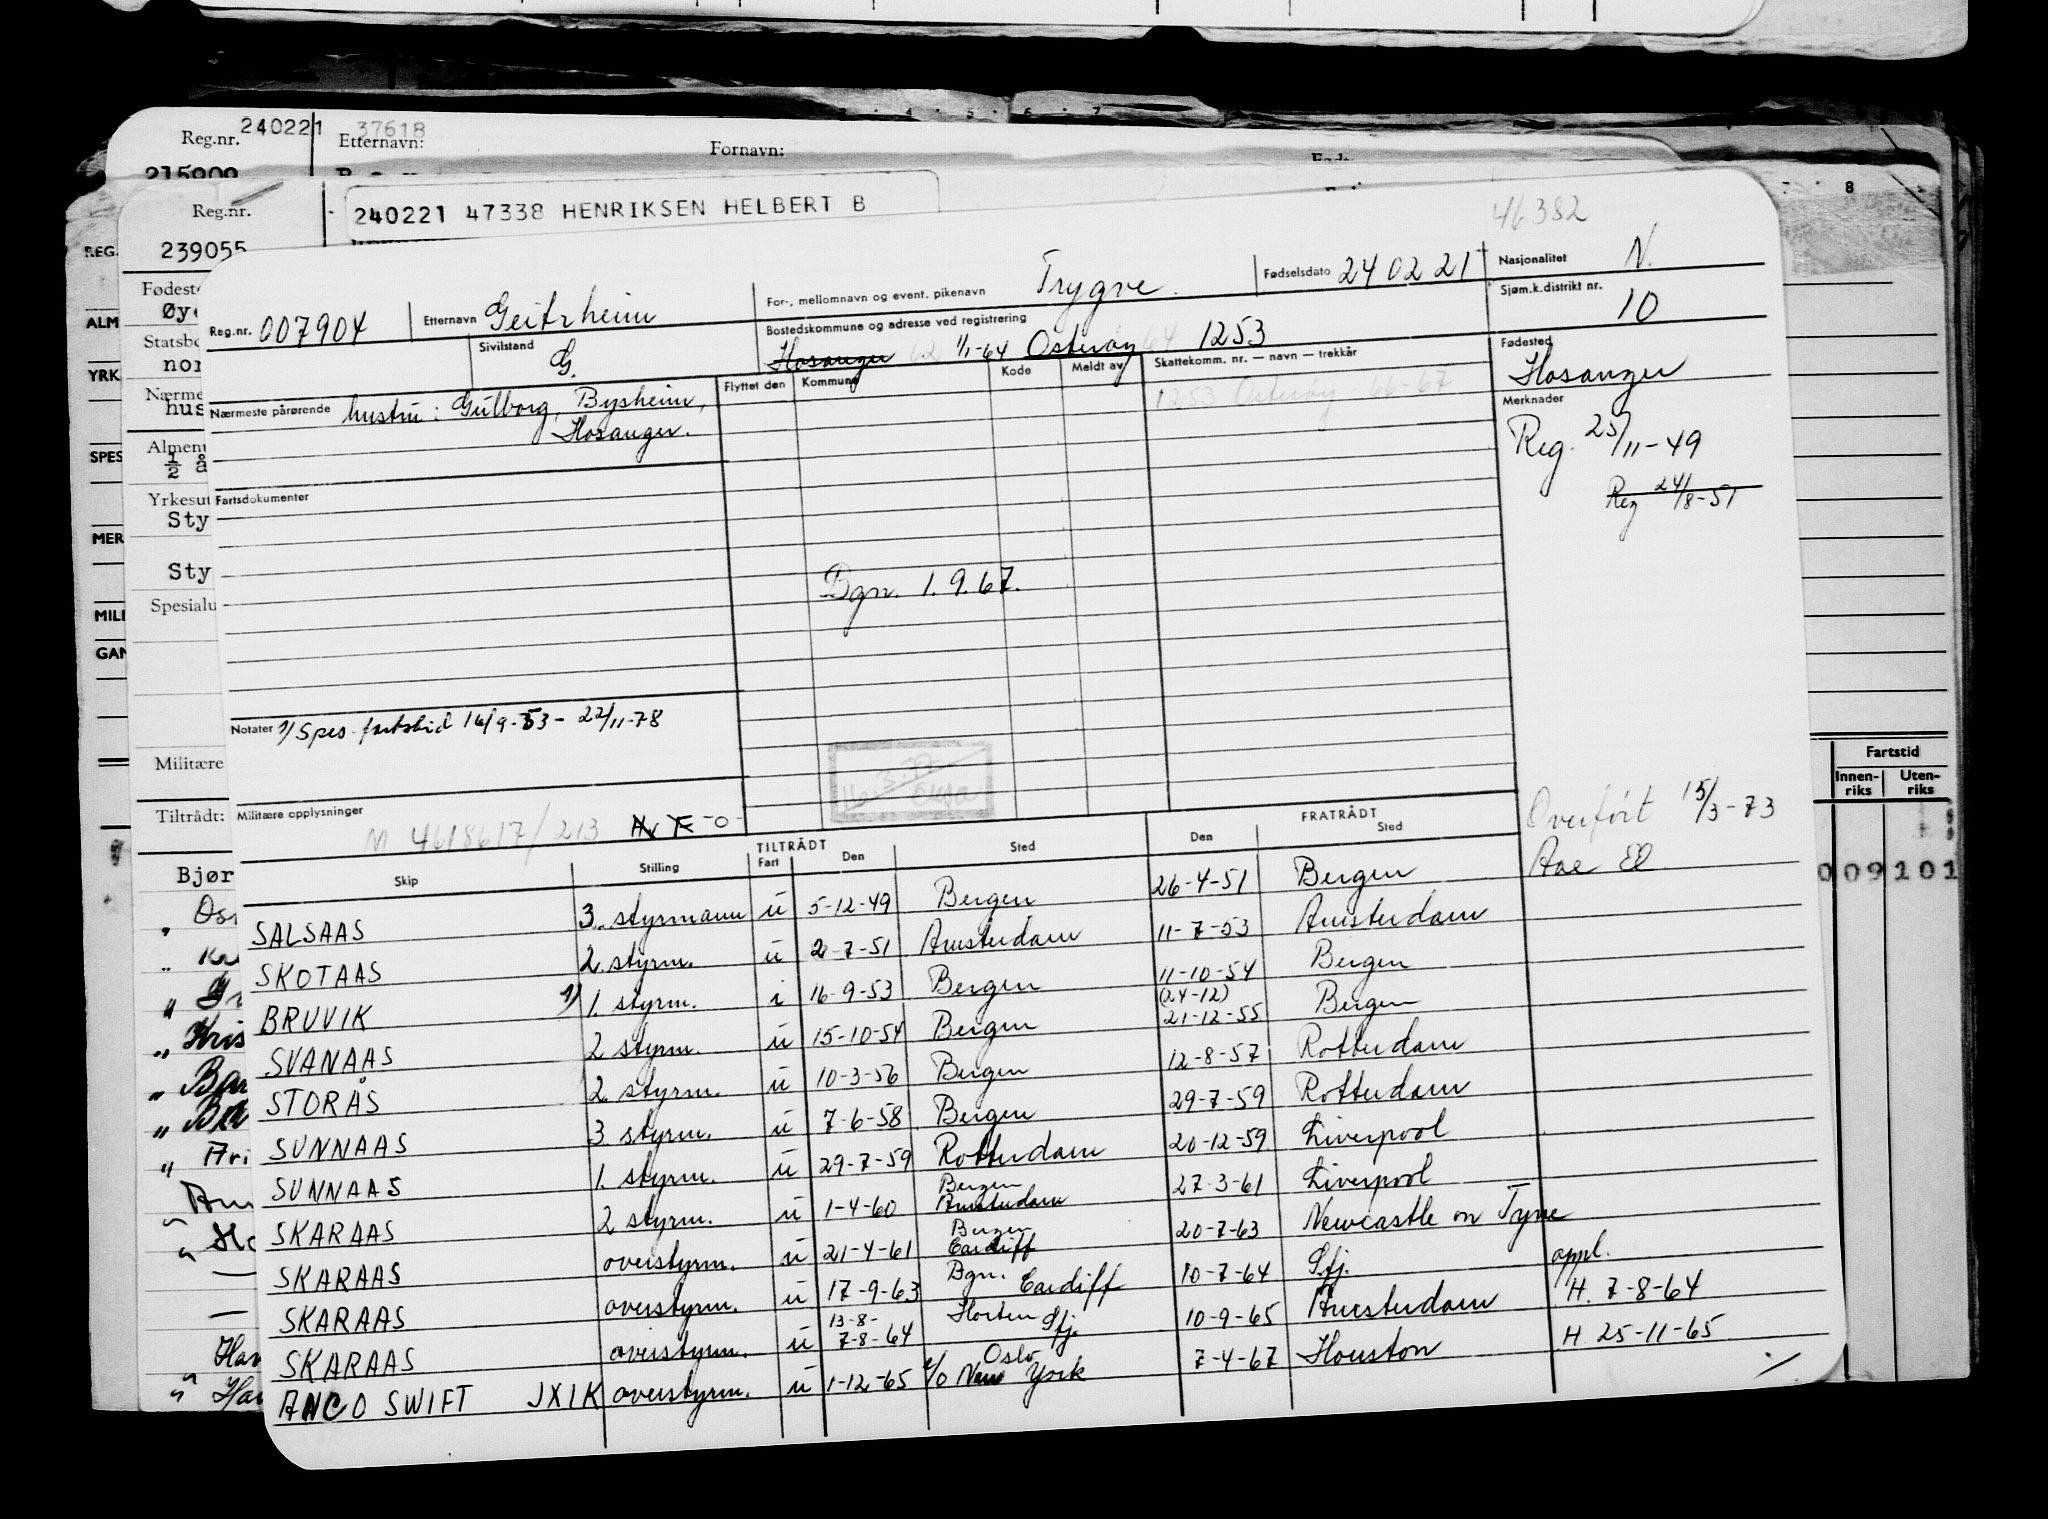 Reg.nr. 240221 37618
Etternavn:
Fornavn:
215909
Reg.nr.
240221 47338 HENRIKSEN HELBERT B
239055
46382
Reg.nr. 007904
Etternavn Geitrheim
For-, mellomnavn og event. pikenavn Trygve.
Fødselsdato 240221
Nasjonalitet N.
Sivilstand G.
Bostedskommune og adresse ved registrering
Hosanger 1/1-64 Osterøy 1253
Sjøm.k.distrikt nr. 10
Fødested Hosanger
Nærmeste pårørende hustru: Gulborg, Bysheim,
Hosanger.
Flyttet den Kommune Kode Meldt av Skattekomm. nr. — navn — trekkår
1253 Osterøy 66-67
Merknader
Reg. 25/11-49
Reg 24/8-51
Fartsdokumenter
Bgn. 1.9.67.
Notater 1/ Spes. fartstid 16/9-53 - 22/11-78
Militære opplysninger
M 4618617/213
Overført 15/3-73
Aae El.
TILTRÅDT
FRATRÅDT
Skip Stilling Fart Den Sted Den Sted
SALSAAS 3. styrmann u 5-12-49 Bergen 26-4-51 Bergen
SKOTAAS 2. styrm. u 2-7-51 Amsterdam 11-7-53 Amsterdam
BRUVIK 1) 1. styrm. i 16-9-53 Bergen 11-10-54 Bergen
SVANAAS 2 styrm. u 15-10-54 Bergen (24-12) 21-12-55 Bergen
STORÅS 2 styrm. u 10-3-56 Bergen 12-8-57 Rotterdam
SUNNAAS 3 styrm. u 7-6-58 Bergen 29-7-59 Rotterdam
SUNNAAS 1. styrm. u 29-7-59 Rotterdam 20-12-59 Liverpool
SKARAAS 2 styrm. u 1-4-60 Bergen Amsterdam 27-3-61 Liverpool
SKARAAS overstyrm. u 21-4-61 Bergen Cardiff 20-7-63 Newcastle on Tyne
SKARAAS overstyrm. u 17-9-63 Bgn. Cardiff 10-7-64 Sfj. oppl.
SKARAAS overstyrm. u 13-8- 7-8-64 Horten Sfj. 10-9-65 Amsterdam H. 7-8-64
ANCO SWIFT JXIK overstyrm. u 1-12-65 Oslo t/o New York 7-4-67 Houston H. 25-11-65
Fartstid
Innen-riks Uten-riks
009 101